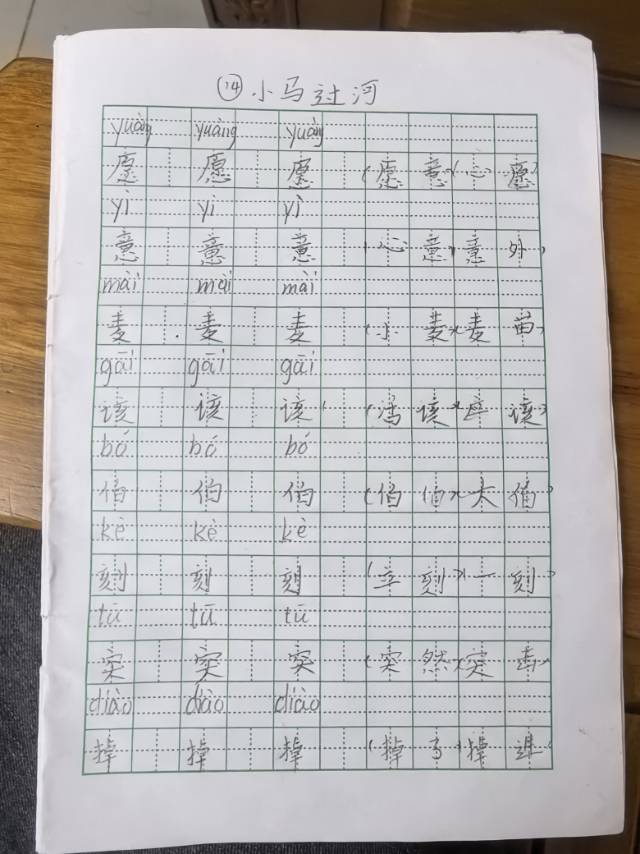 ⑭小马过河
yuàng yuàng yuàng
愿 愿 愿 (愿意)(心愿)
yì yì yì
意 意 意 (心意)(意外)
mài mài mài
麦 麦 麦 (小麦)(麦苗)
gāi gāi gāi
该 该 该 (活该)(应该)
bó bó bó
伯 伯 伯 (伯伯)(大伯)
kè kè kè
刻 刻 刻 (立刻)(一刻)
tū tū tū
突 突 突 (突然)(突击)
diào diào diào
掉 掉 掉 (掉了)(掉进)